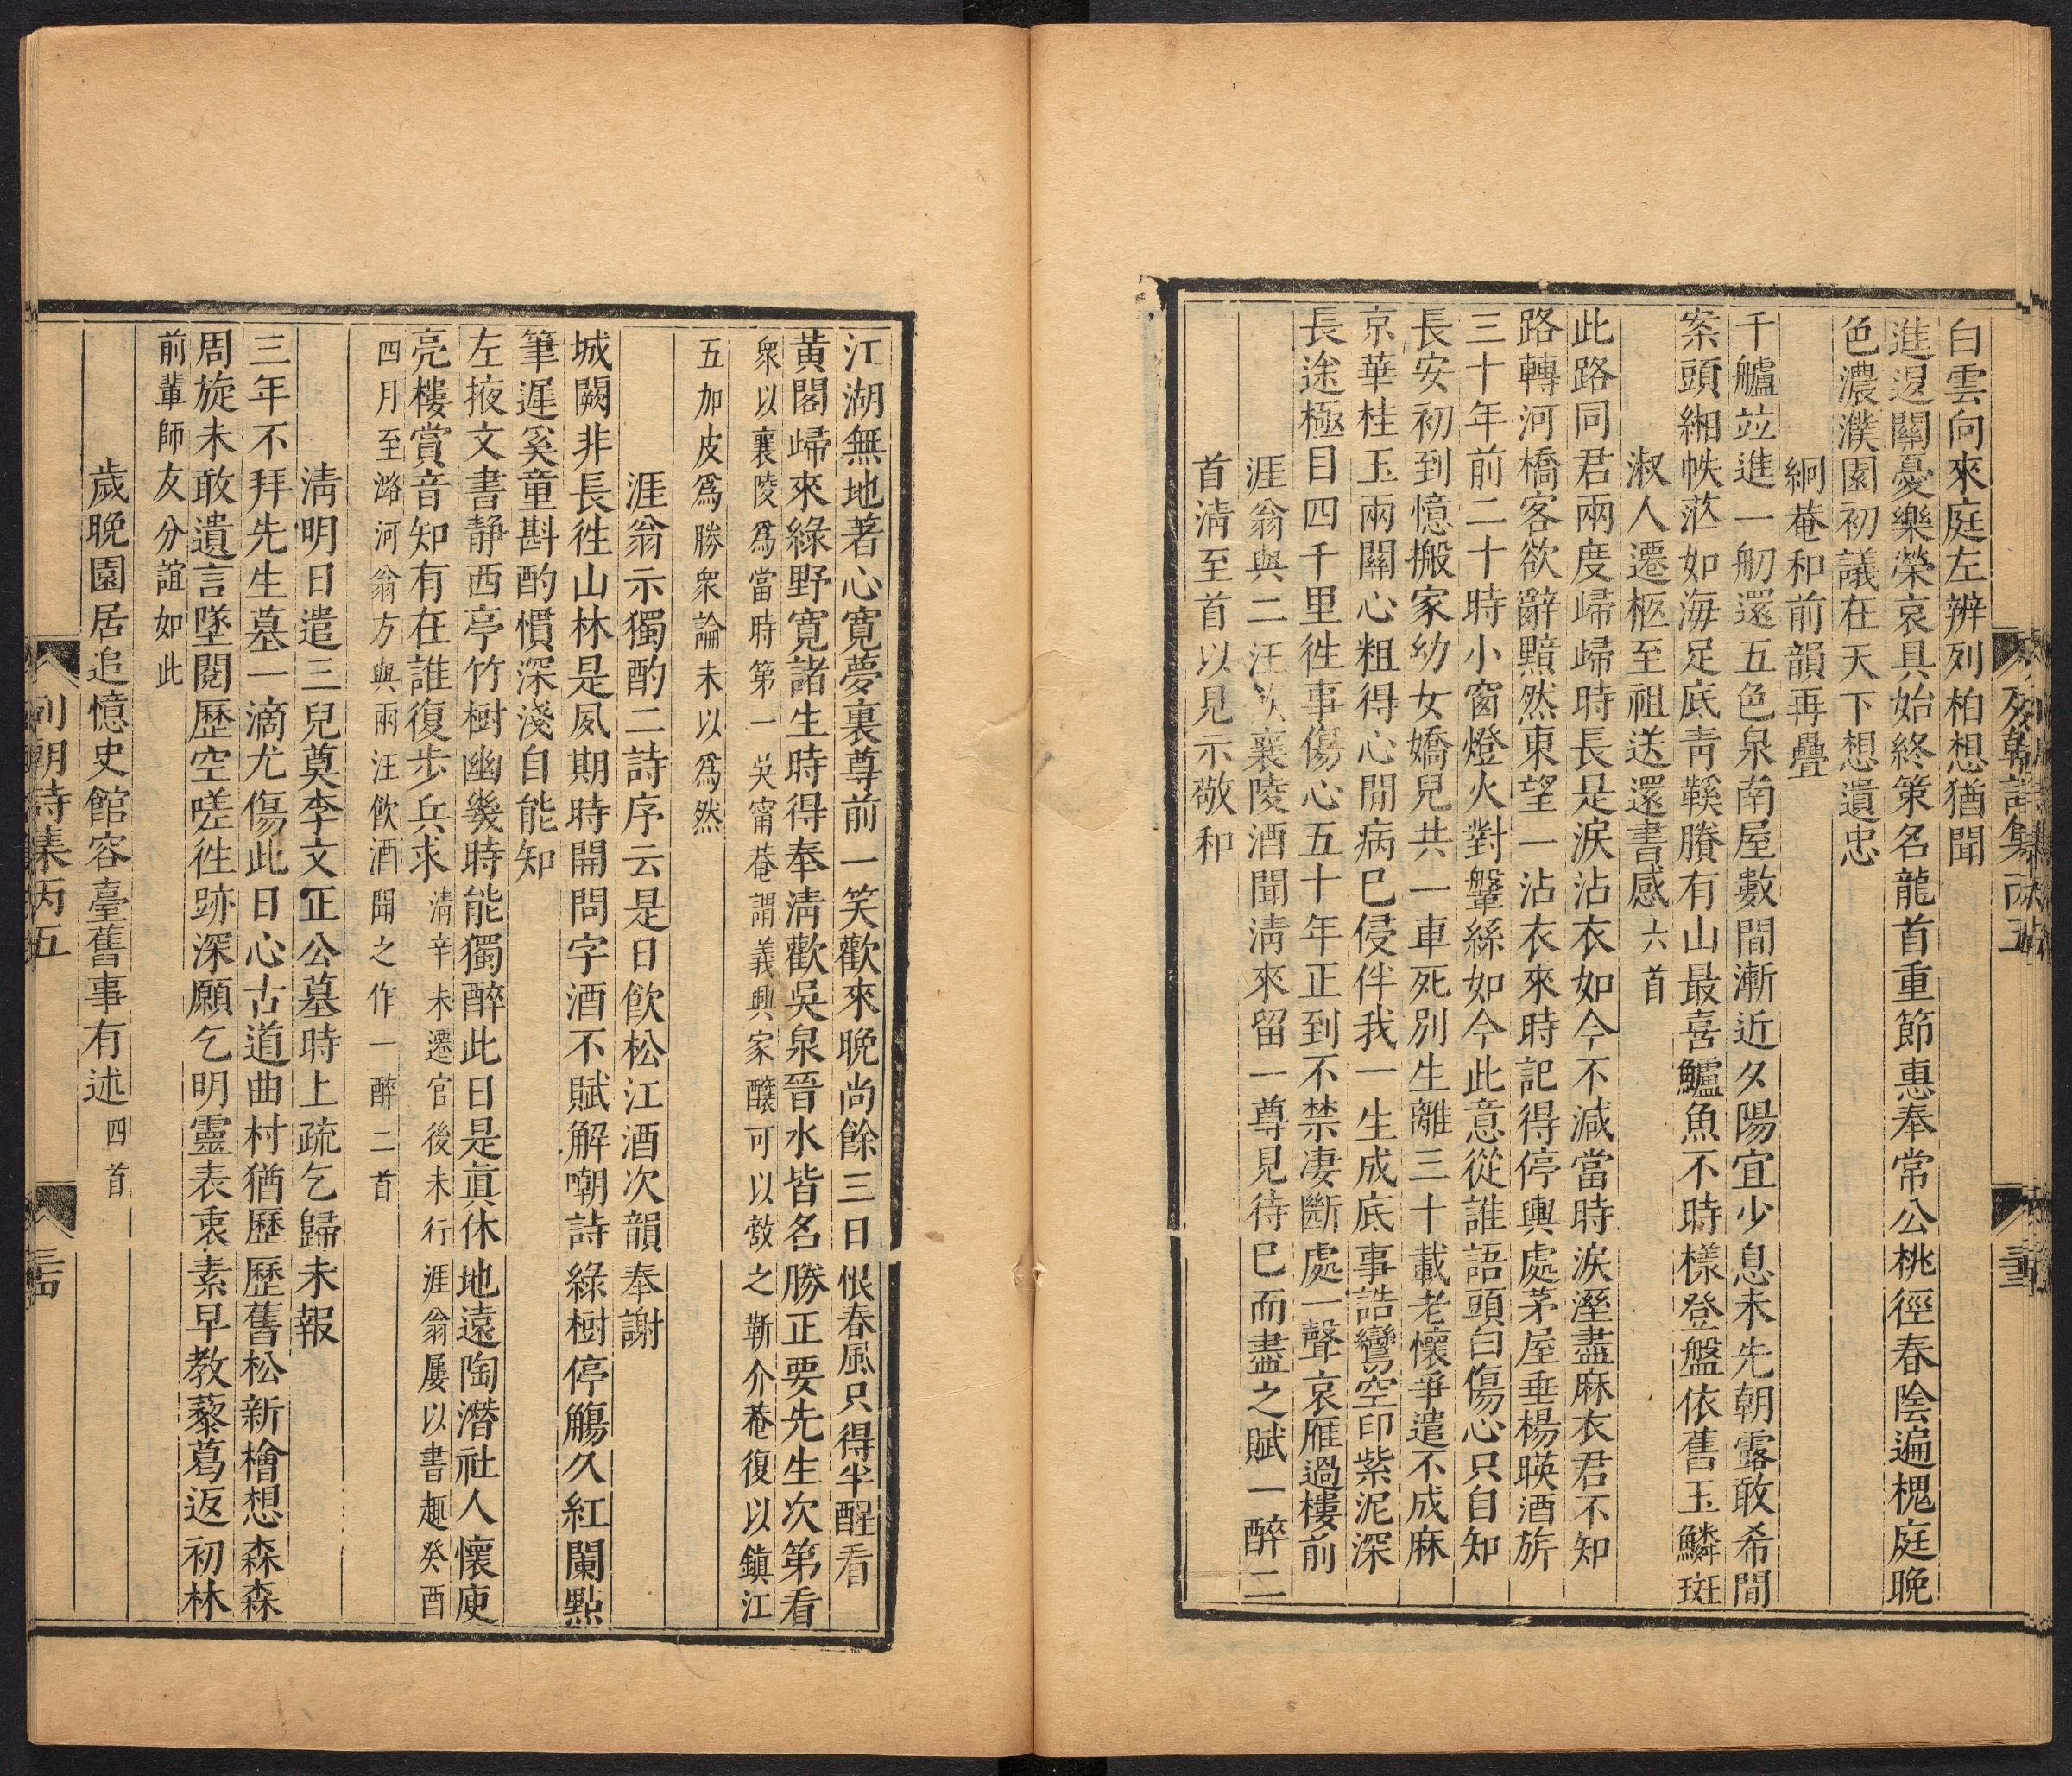 白雲向來庭左辨列柏想猶聞
進退關憂樂榮哀具始終策名龍首重節惠奉常公桃徑春陰遍槐庭晚
色濃濮園初議在天下想遺忠
絅菴和前韻再疊
千艫竝進一舠還五色泉南屋數間漸近夕陽宜少息未先朝露敢希閒
案頭緗帙茫如海足底青鞵賸有山最喜鱸魚不時樣登盤依舊玉鱗斑
淑人遷柩至祖送還書感六首
此路同君兩度歸歸時長是淚沾衣如今不減當時淚溼盡麻衣君不知
路轉河橋客欲辭黯然東望一沾衣來時記得停輿處茅屋垂楊暎酒旂
三十年前二十時小窗燈火對鞶絲如今此意從誰語頭白傷心只自知
長安初到憶搬家幼女嬌兒共一車死別生離三十載老懷爭遣不成麻
京華桂玉兩關心粗得心閒病已侵伴我一生成底事誥鸞空印紫泥深
長途極目四千里徃事傷心五十年正到不禁凄斷處一聲哀雁過樓前
涯翁與二汪飲襄陵酒聞淸來留一尊見待已而盡之賦一醉二
首淸至首以見示敬和
江湖無地著心寬夢裏尊前一笑歡來晚尚餘三日恨春風只得半醒看
黃閣歸來綠野寬諸生時得奉淸歡吳泉晉水皆名勝正要先生次第看
衆以襄陵爲當時第一吳甯菴謂義興家釀可以敵之靳介菴復以鎭江
五加皮爲勝衆論未以爲然
涯翁示獨酌二詩序云是日飮松江酒次韻奉謝
城闕非長徃山林是夙期時開問字酒不賦解嘲詩綠樹停觴久紅闌點
筆遲奚童斟酌慣深淺自能知
左掖文書靜西亭竹樹幽幾時能獨醉此日是眞休地遠陶潛社人懷庾
亮樓賞音知有在誰復步兵求淸辛未遷官後未行涯翁屢以書趣癸酉
四月至潞河翁方與兩汪飲酒聞之作一醉二首
淸明日遣三兒奠李文正公墓時上疏乞歸未報
三年不拜先生墓一滴尤傷此日心古道曲村猶歷歷舊松新檜想森森
周旋未敢遺言墜閱歷空嗟徃跡深願乞明靈表衷素早教藜葛返初林
前輩師友分誼如此
歲晩園居追憶史館容臺舊事有述四首
列朝詩集丙五
三四